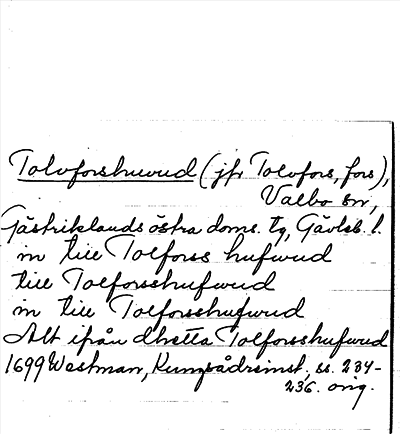 Tolvforshuvud (jfr Tolvfors, fors),
Valbo sn,
Gästriklands östra doms. tg, Gävleb. l.
in till Tolforss hufwud
till Tolforsshufwud
in till Tolforsshufwud
Alt ifrån dhetta Tolforsshufwud
1699 Westman, Kungsådreinst. ss. 234-
236. orig.